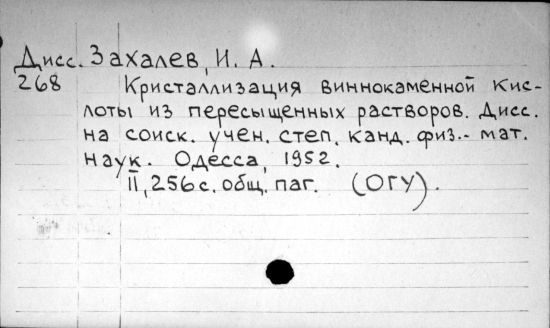 Дисс. Захалев, И. А.
268 Кристаллизация виннокаменной кис-
лоты из пересыщенных растворов. Дисс.
на соиск. учен. степ. канд. физ.- мат.
наук. Одесса, 1952.
II, 256 с. общ. паг. (ОГУ).